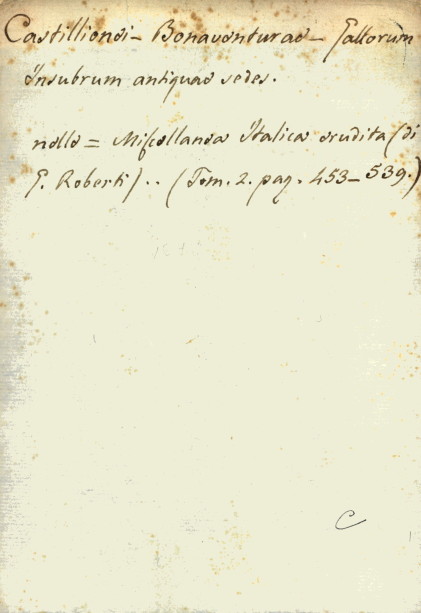 Castillionei - Bonaventurae - Gallorum
Insubrum antiquae sedes.
nelle = Miscellanea Italica erudita (di
G. Roberti) .. (Tom. 2. pag. 453-539.)
C